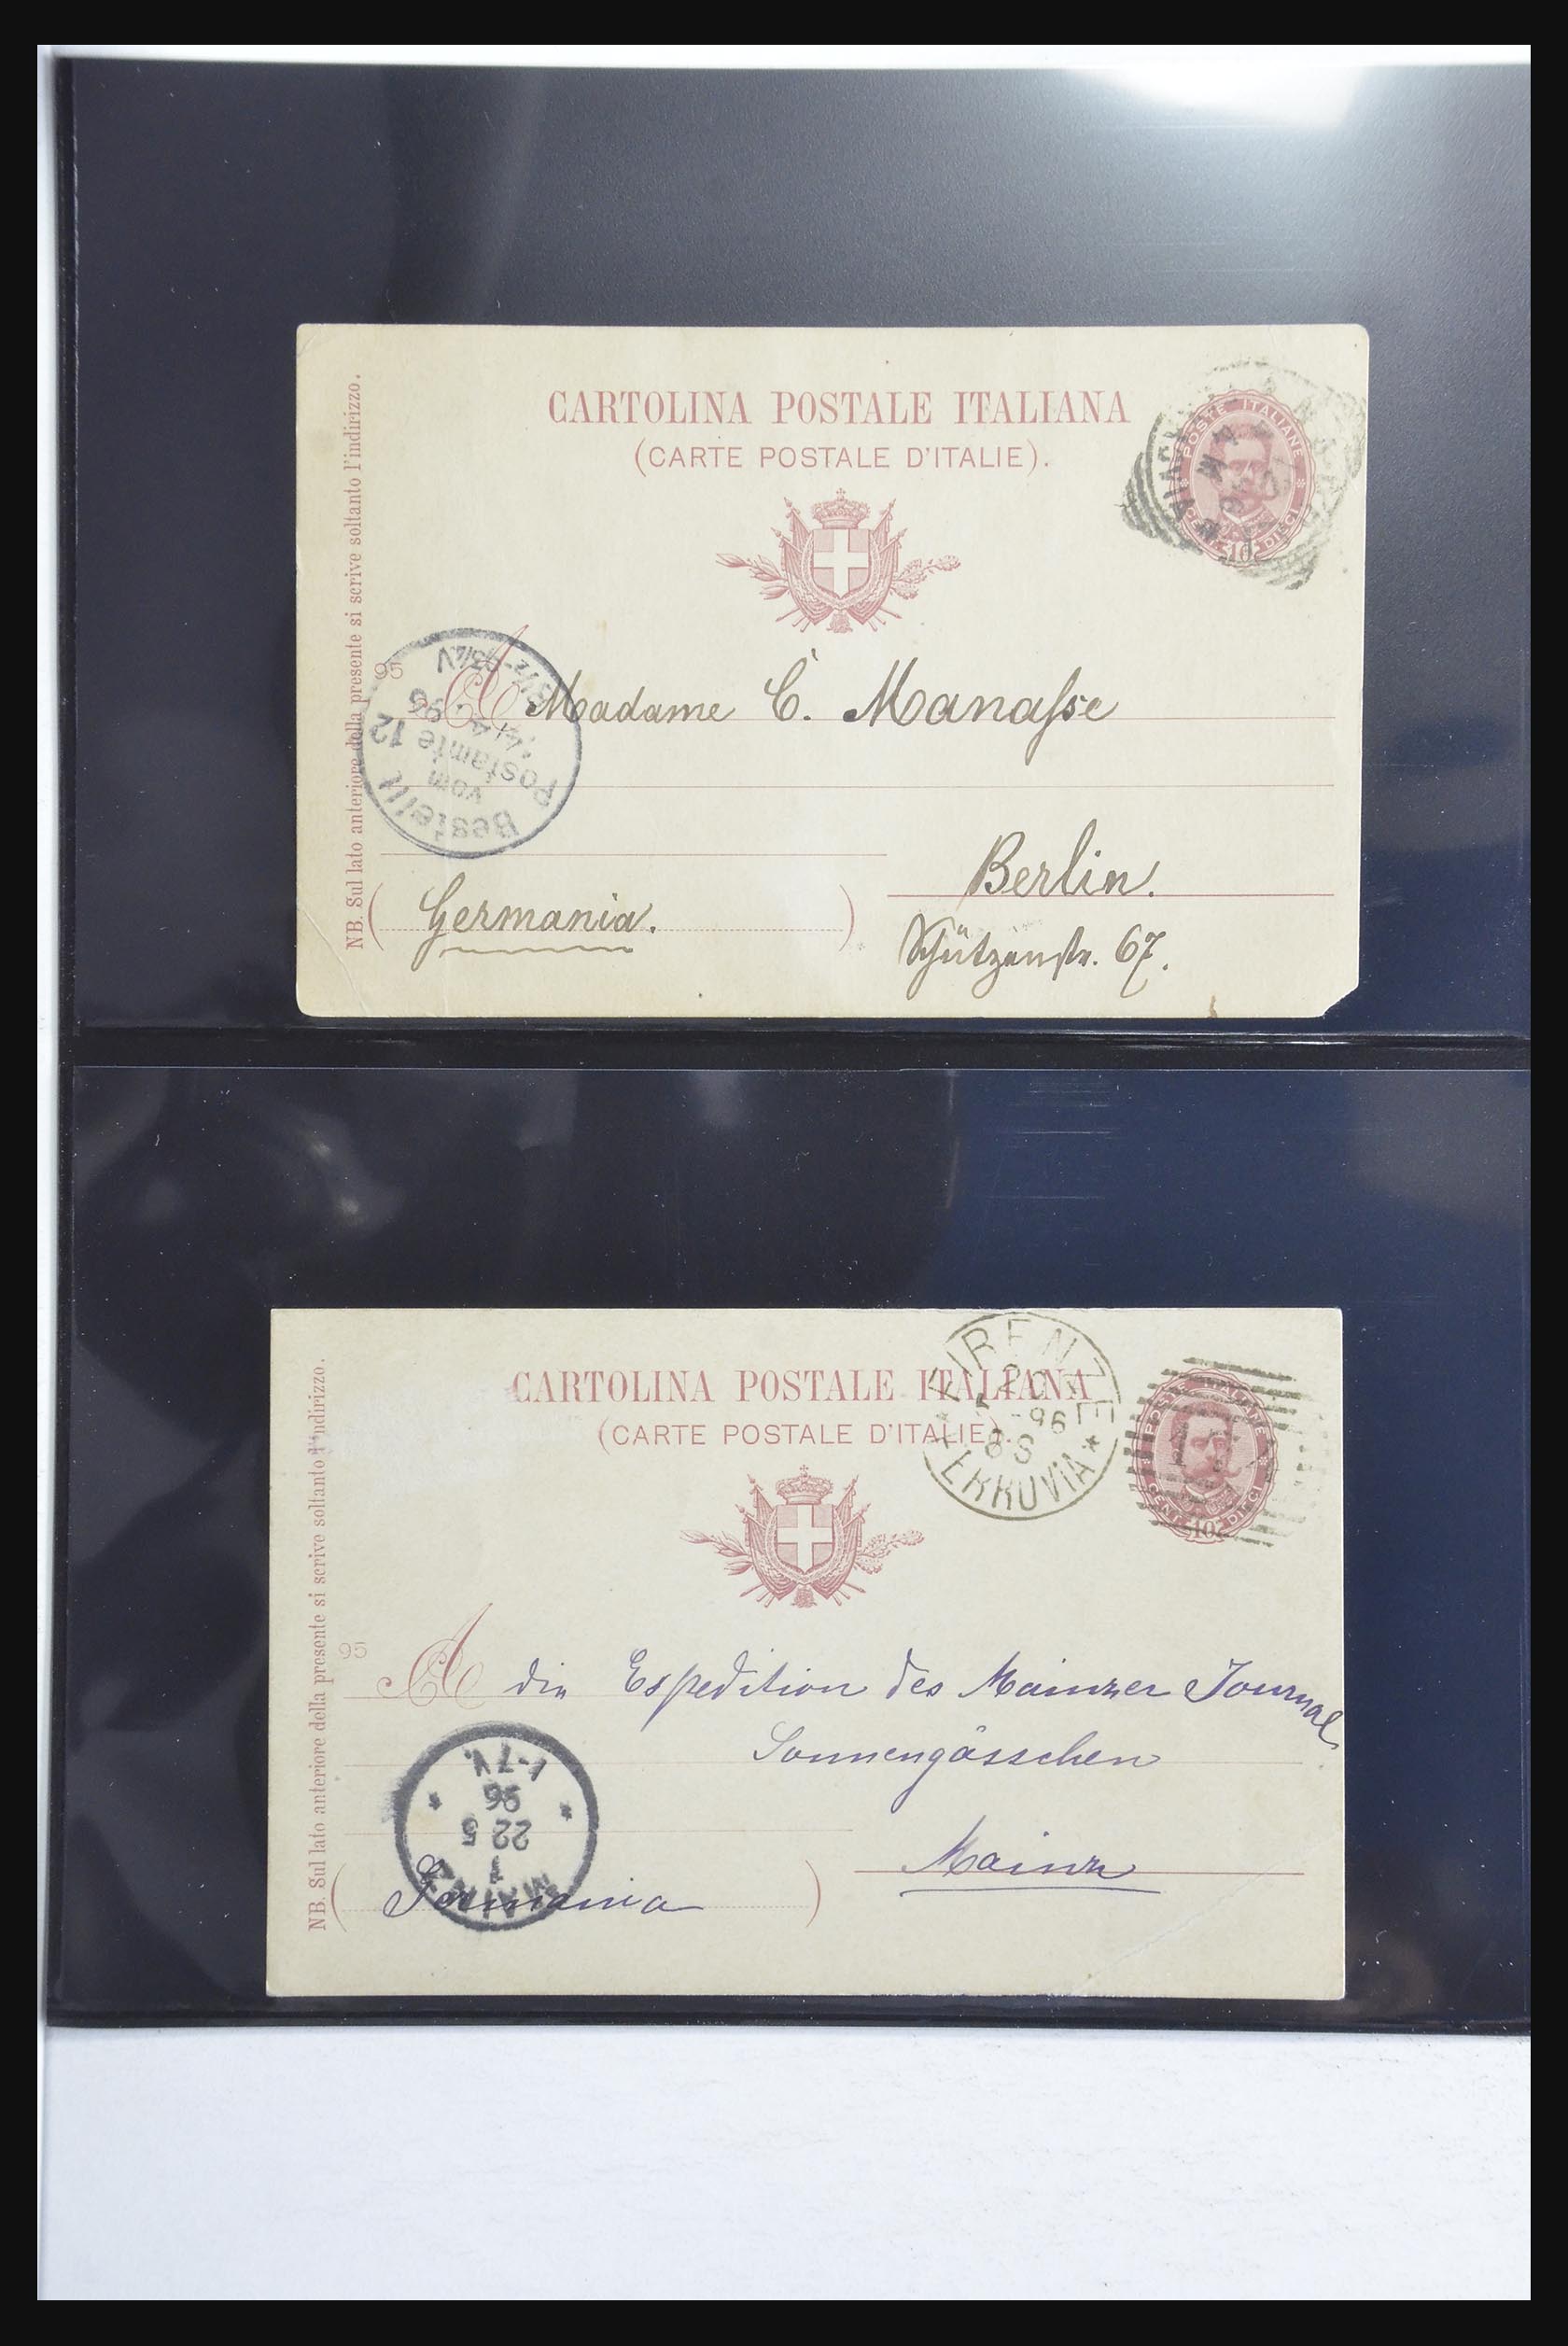 CARTOLINA POSTALE ITALIANA
(CARTE POSTALE D'ITALIE).
POSTE ITALIANE
CENT. 10 DIECI
NB. Sul lato anteriore della presente si scrive soltanto l'indirizzo.
95
A Madame C. Manaſse
Bestellt
vom
Postamte 12
96
Berlin.
(Germania.)
Schützenstr. 67.
CARTOLINA POSTALE ITALIANA
(CARTE POSTALE D'ITALIE).
FIRENZE
96
8 S
FERROVIA
POSTE ITALIANE
CENT. 10 DIECI
NB. Sul lato anteriore della presente si scrive soltanto l'indirizzo.
95
A die Expedition des Mainzer Journal
Sonnengässchen
MAINZ
1
22 5
96
1-7V.
Mainz
(Germania)